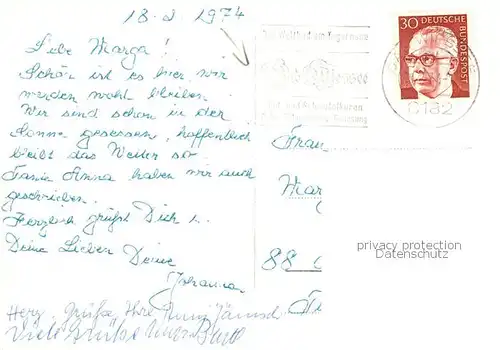 18.2 1974
Liebe Marga!
Schön ist es hier, wir
werden wohl bleiben.
Wir sind schon in der
Sonne gesessen, hoffentlich
bleibt das Wetter so.
Tante Anna haben wir auch
geschrieben.
Herzlich grüßt Dich u.
Deine Lieben Deine
Johanna
Herz. Grüße Ihre
Viele Grüße
30 DEUTSCHE
BUNDESPOST
8182
Frau
Mar
88
privacy protection
Datenschutz